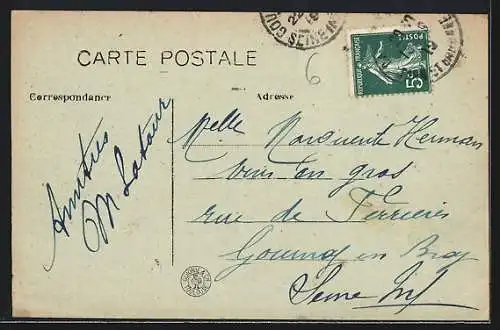 CARTE POSTALE
Correspondance
Adresse
POSTES
RÉPUBLIQUE FRANÇAISE
5
6
Amitiés
M Latour
Melle Marguerite Herman
vins en gros
rue de Ferrières
Gournay en Bray
Seine Inf